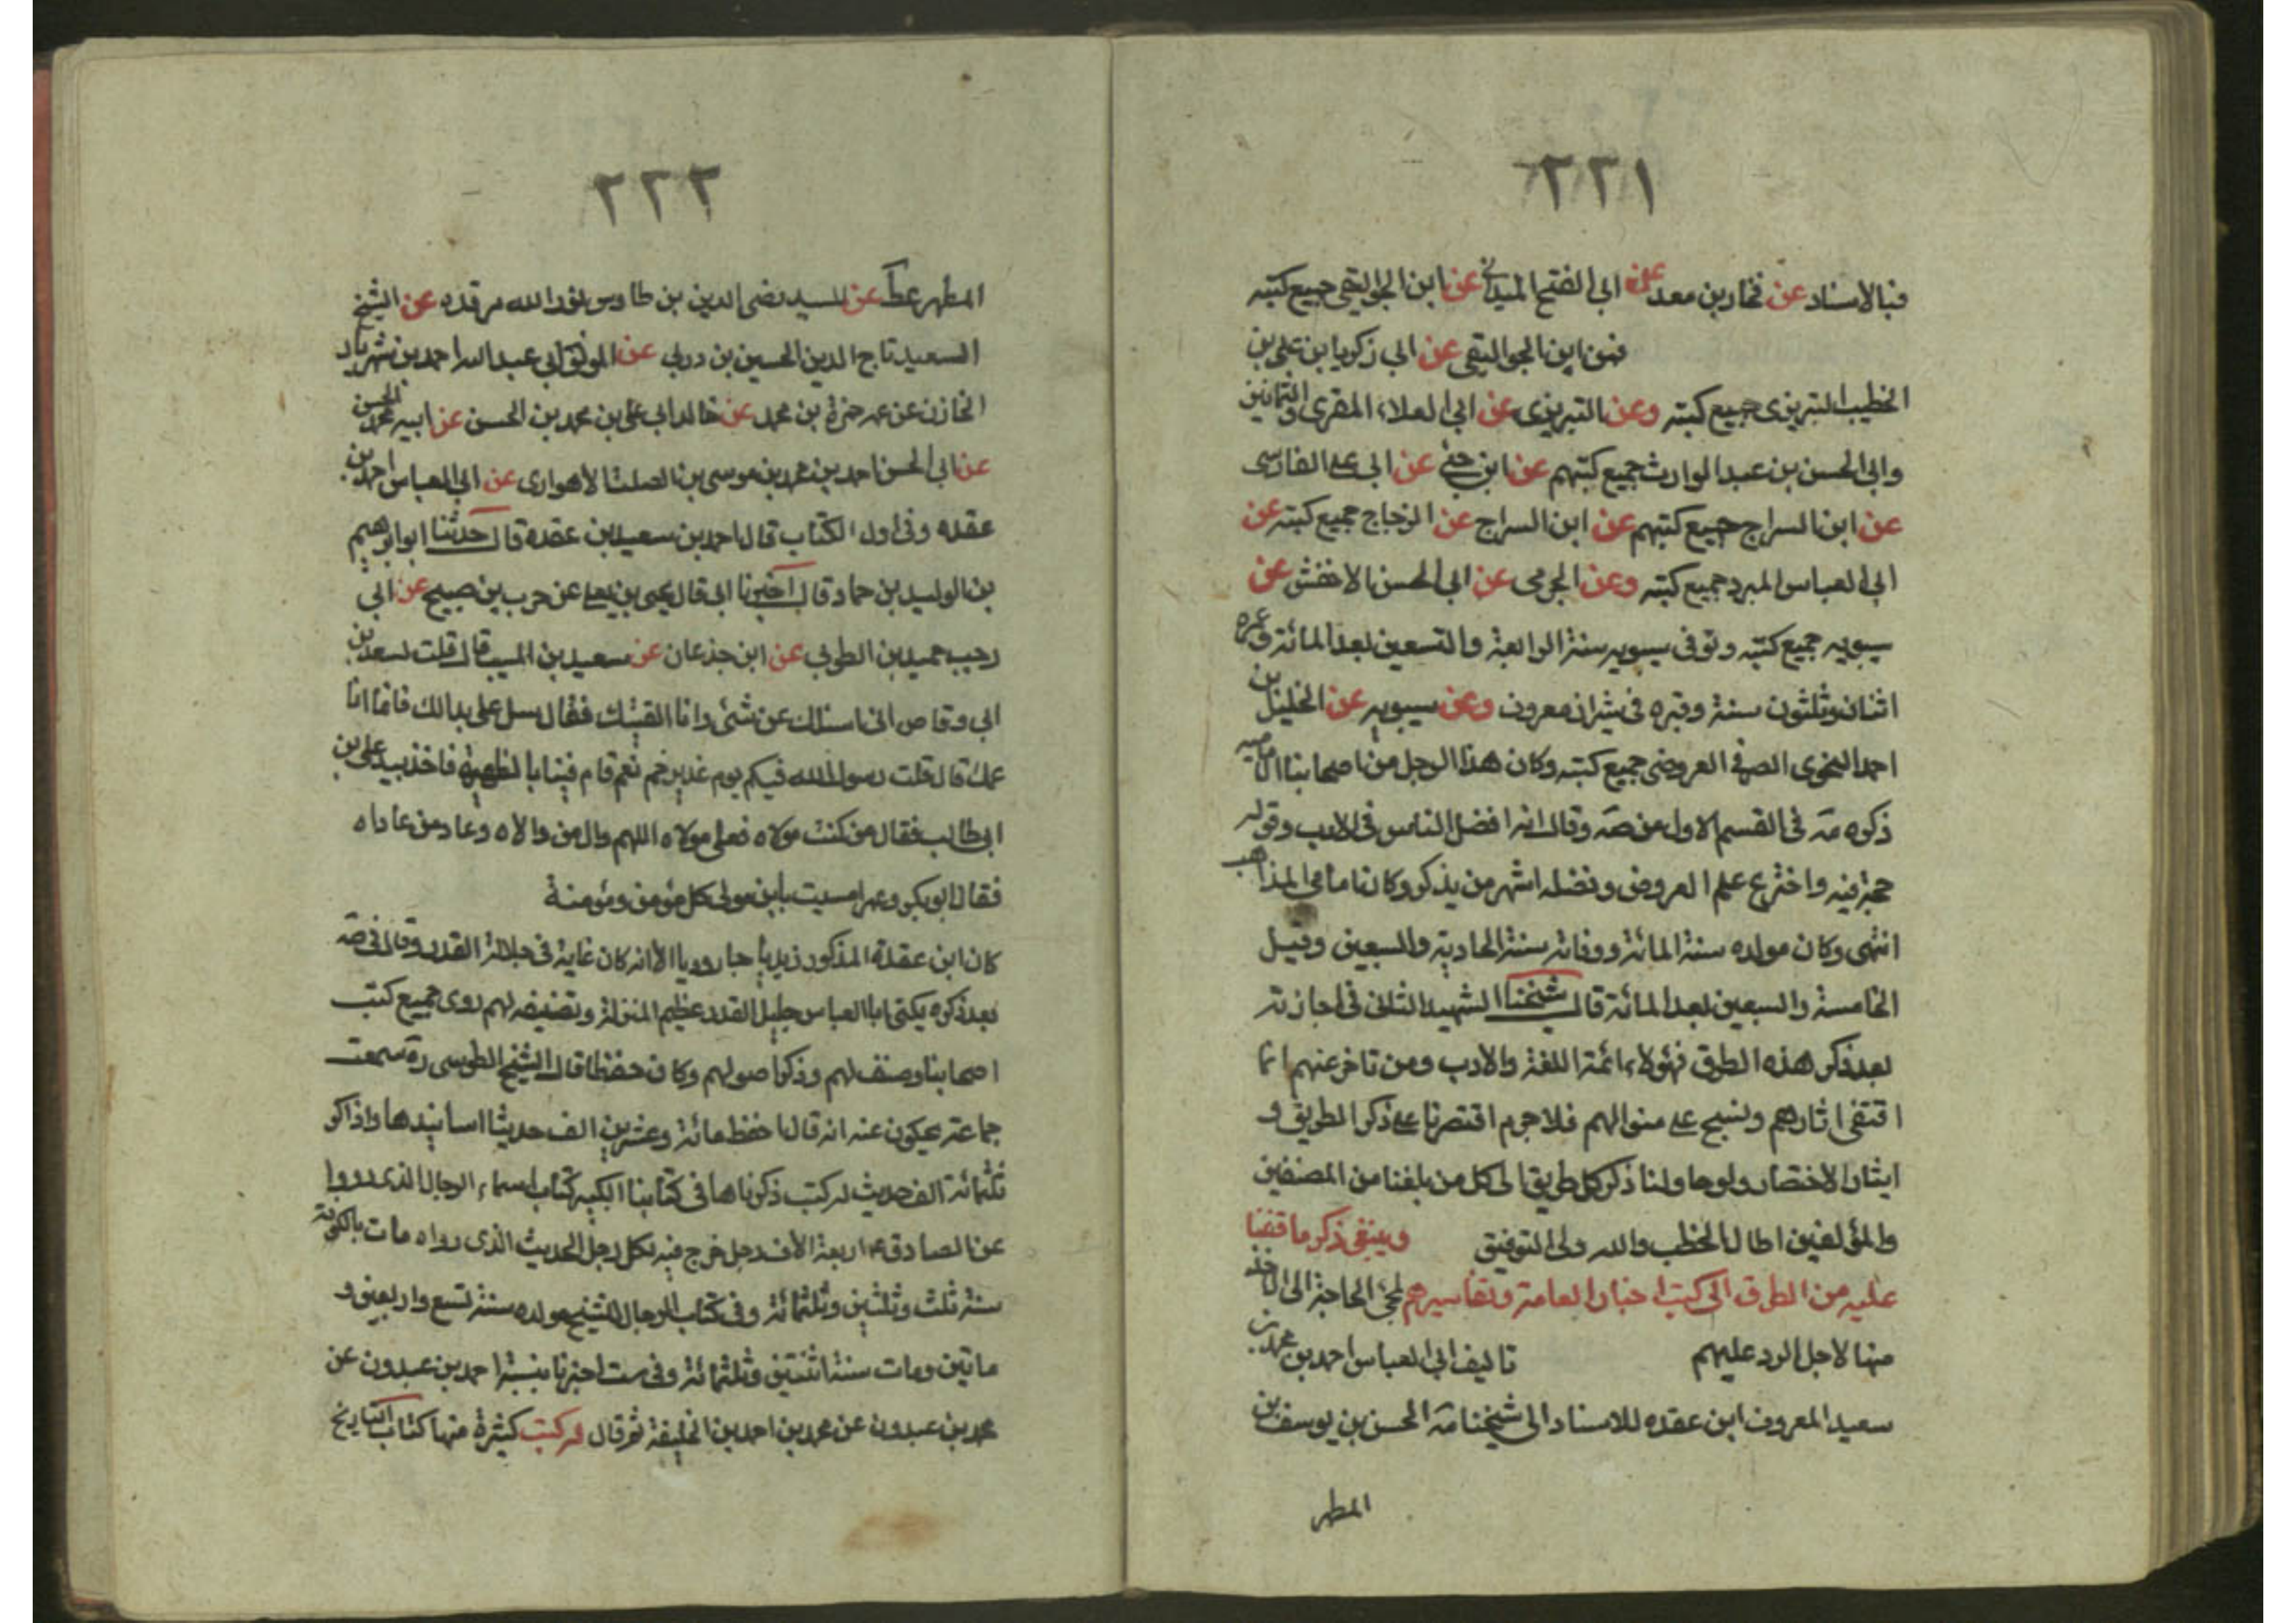 ٢٢١
فبالاسناد عن فخار بن معد عن ابى الفتح الميدانى عن ابن الجواليقى جميع كتبه
فهن ابن الجواليقى عن ابى زكريا بن على بن
الخطيب التبريزى جميع كتبه وعن التبريزى عن ابى العلاء المقرى والثمانين
وابى الحسن بن عبد الوارث جميع كتبهم عن ابن جنى عن ابى على الفارسى
عن ابن السراج جميع كتبهم عن ابن السراج عن الزجاج جميع كتبه عن
ابى العباس المبرد جميع كتبه وعن الجرمى عن ابى الحسن الاخفش عن
سيبويه جميع كتبه وتوفى سيبويه سنة الرابعة والتسعين بعد المائة وعمره
اثنان وثلثون سنة وقبره فى شيراز معروف وعن سيبويه عن الخليل بن
احمد النحوى الصرفى العروضى جميع كتبه وكان هذا الرجل من اصحابنا الامامية
ذكره مه فى القسم الاول من صه وقال انه افضل الناس فى الادب وقوله
حجة فيه واخترع علم العروض وفضله اشهر من يذكر وكان امامى المذاهب
انتهى وكان مولده سنة المائة ووفاته سنة الحادية والسبعين وقيل
الخامسة والسبعين بعد المائة قال شيخنا الشهيد الثانى فى اجازته
بعد ذكر هذه الطرق فهؤلاء ائمة اللغة والادب ومن تاخر عنهم انما
اقتفى اثارهم ونسج على منوالهم فلا جرم اقتصرنا على ذكر الطريق و
ايثار الاختصار ولو حاولنا ذكر كل طريق الى كل من بلغنا من المصنفين
والمؤلفين اطال الخطب والله ولى التوفيق وينبغى ذكر ما قفنا
عليه من الطرق الى كتب اخبار العامة وتفاسيرهم لمجئ الحاجة الى الاخذ
منها لاجل الرد عليهم تاليف ابى العباس احمد بن محمد بن
سعيد المعروف ابن عقده للاسناد الى شيخنا مه الحسن بن يوسف بن
المطهر
٢٢٢
المطهر عطر عن السيد رضى الدين بن طاوس نور الله مرقده عن الشيخ
السعيد تاج الدين الحسين بن دربى عن الموفق ابى عبد الله احمد بن شهريار
الخازن عن عمه حمزة بن محمد عن خاله ابى على بن محمد بن الحسن عن ابيه محمد بن الحسن
عن ابى الحسن احمد بن محمد بن موسى بن الصلت الاهوازى عن ابى العباس احمد بن
عقده وفى اول الكتاب قال احمد بن سعيد بن عقده قال حدثنا ابو ابرهيم
بن الوليد بن حماد قال اخبرنا ابى قال يحيى بن يعلى عن حرب بن صبيح عن ابى
رجب حميد بن الطوبى عن ابن جذعان عن سعيد بن المسيب قال قلت لسعد بن
ابى وقاص انى اسئلك عن شئ وانا القتبك فقال سل على بدالك فانما انا
عمك قال قلت رسول الله فيكم يوم غدير خم نعم قام فينا بالظهيرة فاخذ بيد على بن
ابى طالب فقال من كنت مولاه فعلى مولاه اللهم وال من والاه وعاد من عاداه
فقال ابو بكر وعمر امسيت يابن مولى كل مؤمن ومؤمنة
كان ابن عقدة المذكور زيديا جاروديا الا انه كان غاية فى جلالة القدر وقال فى صه
بعد ذكره يكنى ابا العباس جليل القدر عظيم المنزلة وتصنيفه لهم روى جميع كتب
اصحابنا وصنف لهم وذكر اصولهم وكان حفظا قال الشيخ الطوسى ره سمعت
جماعة يحكون عنه انه قال احفظ مائة وعشرين الف حديثا اسانيدها واذاكر
ثلثمائة الف حديث له كتب ذكرناها فى كتابنا الكبير كتاب اسماء الرجال الذى رووا
عن الصادق ع اربعة الاف رجل خرج فيه لكل رجل الحديث الذى رواه مات بالكوفة
سنة ثلث وثلثين وثلثمائة وفى كتاب الرجال للشيخ مولده سنة تسع واربعين و
ماتين ومات سنة اثنتين وثلثمائة وفى ست اخبرنا بنسبة احمد بن عبدون عن
محمد بن عبدون عن محمد بن احمد بن الخليفة ثم قال له كتب كثيرة منها كتاب التاريخ